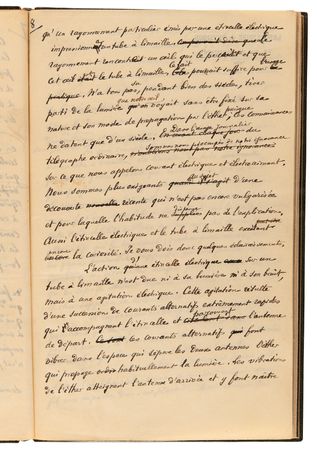 8
qu'un rayonnement particulier émis par une étincelle électrique
impressionnât un tube à limaille,
rayonnement rencontrât un œil qui le perçoit et que
cet œil le tube à limaille, pouvait suffire pour
N'a-t-on pas, pendant bien des siècles, tiré
parti de la lumière sans être fixé sur sa
nature et son mode de propagation par l'éther, les connaissances
ne datent que d'un siècle. Dans l'usage journalier du
télégraphe ordinaire, sommes nous préoccupés de notre ignorance
sur ce que nous appelons courant électrique et électroaimant.
Nous sommes plus exigeants au sujet d'une
découverte récente qui n'est pas encore vulgarisée
et pour laquelle l'habitude ne dispense pas de l'explication.
Aussi l'étincelle électrique et le tube à limaille excitent
encore la curiosité. Je vous dois donc quelques éclaircissements.
L'action d'une étincelle électrique sur un
tube à limaille n'est due ni à sa lumière ni à son bruit
mais à une agitation électrique. Cette agitation résulte
d'une succession de courants alternatifs extrêmement rapides
qui accompagnent l'étincelle et l'antenne
de départ. Ces courants alternatifs font
vibrer dans l'espace qui sépare les deux antennes l'éther
qui propage habituellement la lumière. Les vibrations
de l'éther atteignant l'antenne d'arrivée et y font naître